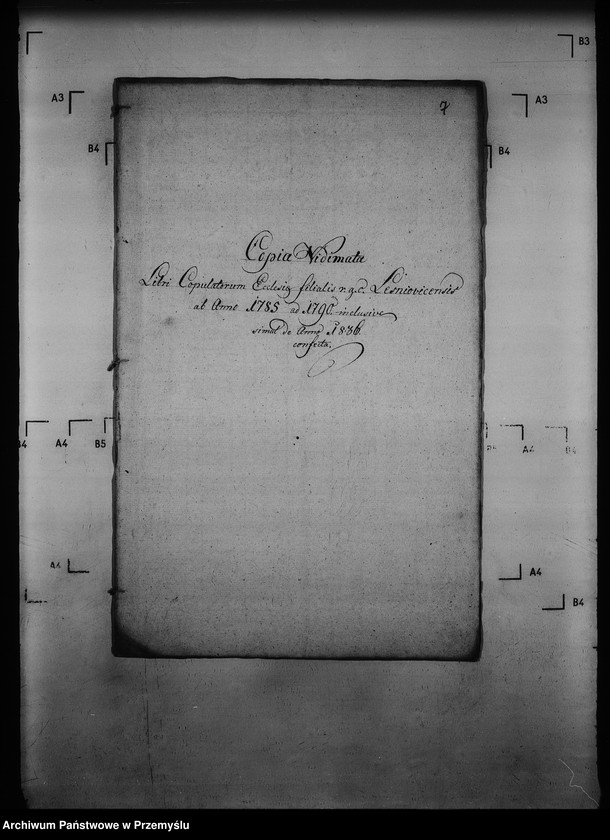 B3
A3
A3
B4
B4
7
Copia Vidimata
Libri Copulatorum Ecclesiæ filialis r. g. c. Lesniovicensis
ab Anno 1785 ad 1790 inclusive
simul de Anno 1836.
confecta.
B4
A4
B5
B5
A4
B4
A4
A4
B4
Archiwum Państwowe w Przemyślu